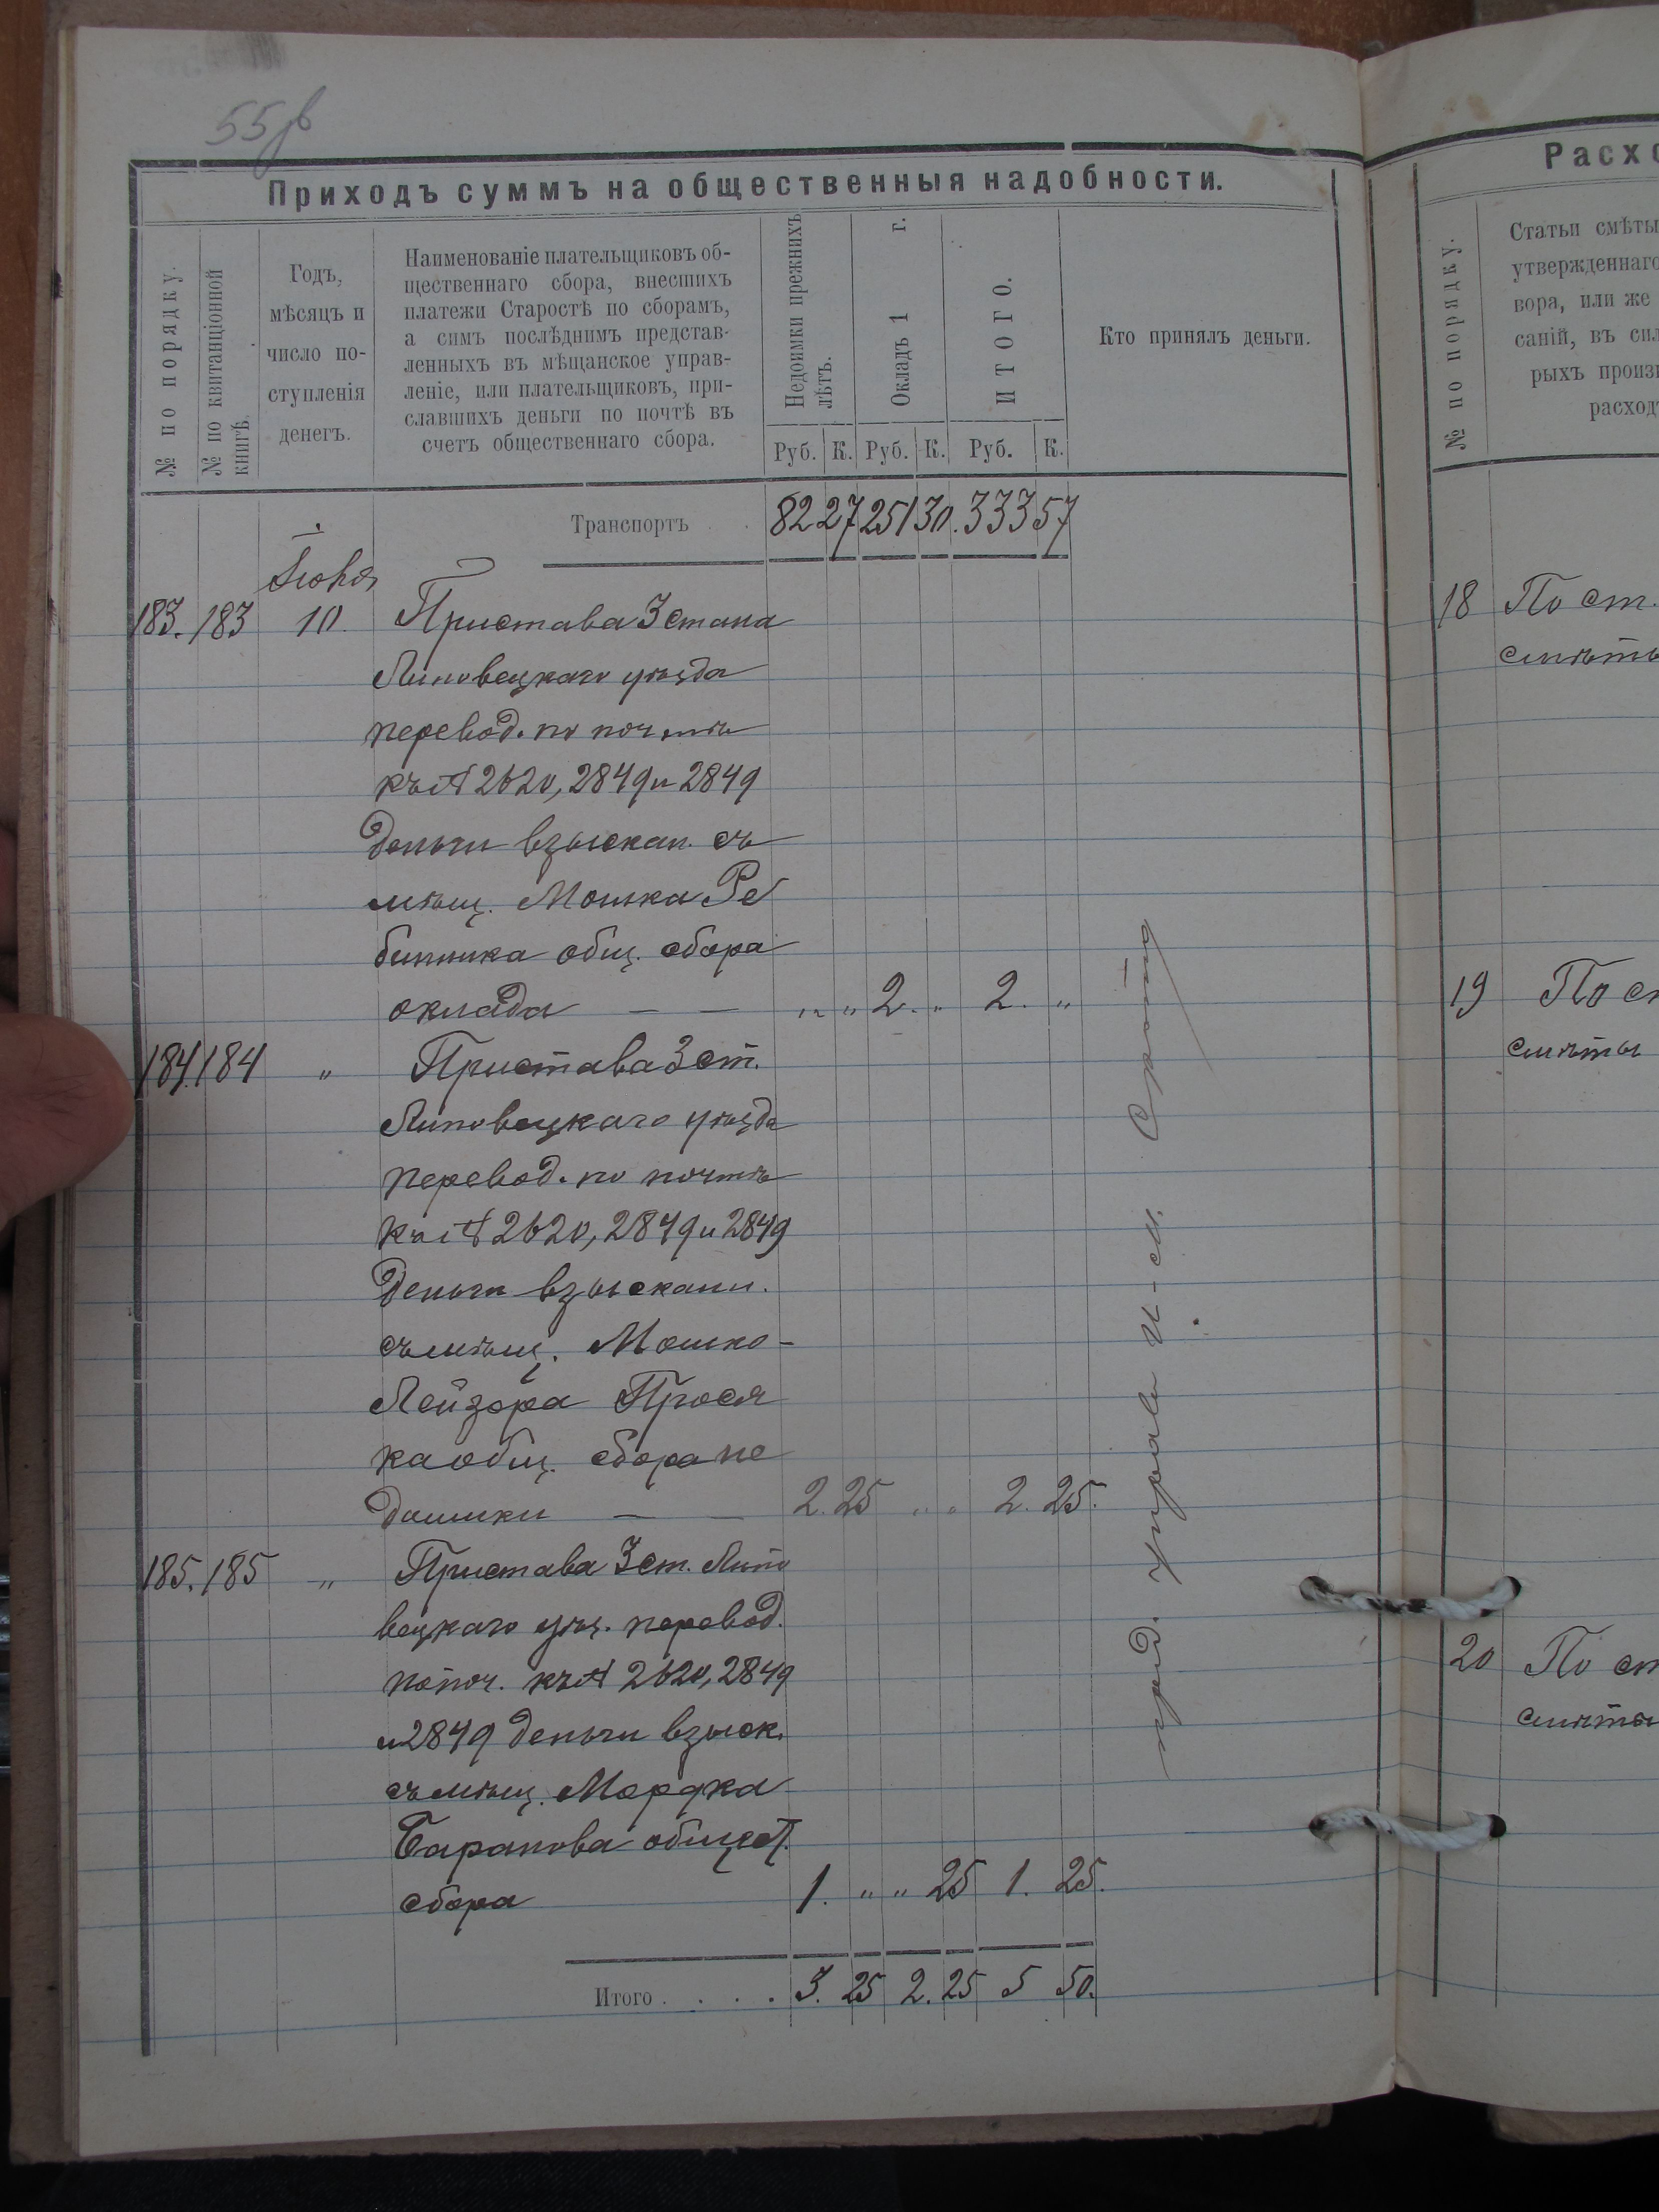 55 об
Приходъ суммъ на общественныя надобности.
№ по порядку.
№ по квитанціонной книгѣ.
Годъ,
мѣсяцъ и
число по-
ступленія
денегъ.
Наименованіе плательщиковъ об-
щественнаго сбора, внесшихъ
платежи Старостѣ по сборамъ,
а симъ послѣднимъ представ-
ленныхъ въ мѣщанское управ-
леніе, или плательщиковъ, при-
славшихъ деньги по почтѣ въ
счетъ общественнаго сбора.
Недоимки прежнихъ
лѣтъ.
Окладъ 1 г.
ИТОГО.
Кто принялъ деньги.
Руб. К. Руб. К. Руб. К.
Транспортъ . . 82 27 251 30. 333 57
183. 183 10. Пристава 3 стана
Липовецкаго уѣзда
перевод. по почтѣ
къ № 2620, 2849 и 2849
деньги взыскан. съ
мѣщ. Мошка Ре
бинника общ. сбора
оклада — — „ „ 2. „ 2. „
184. 184 „ Пристава 3 ст.
Липовецкаго уѣзда
перевод. по почтѣ
къ № 2620, 2849 и 2849
деньги взыскан.
съ мѣщ. Мошко-
Лейзора Прося
ка общ. сбора не
доимки — — 2. 25 „ „ 2. 25.
185. 185 „ Пристава 3 ст. Липо
вецкаго уѣз. перевод.
по поч. къ № 2620, 2849
и 2849 деньги взыск.
съ мѣщ. Мордка
Баранова общест.
сбора 1. „ „ 25 1. 25.
Итого . . . . 3. 25 2. 25 5 50.
Расхо
№ по порядку.
Статьи смѣты
утвержденнаго
вора, или же
саній, въ сил
рыхъ произв
расход
18 По ст.
смѣты
19 По с
смѣты
20 По ст
смѣты